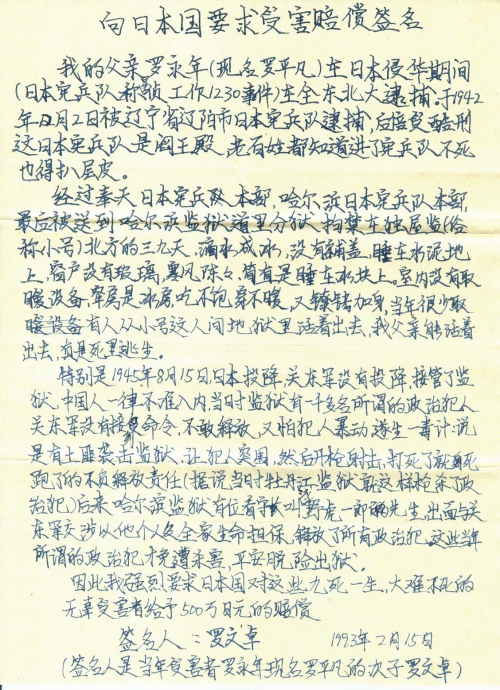 向日本国要求受害赔偿签名
我的父亲罗永年(现名罗平凡)在日本侵华期间
(日本宪兵队称贞工作1230事件)在全东北大逮捕.于1942
年12月2日被辽宁省辽阳市日本宪兵队逮捕,后惨受酷刑
这日本宪兵队是阎王殿,老百姓都知道进了宪兵队不死
也得扒层皮。
经过奉天日本宪兵队本部,哈尔滨日本宪兵队本部,
最后被送到哈尔滨监狱道里分狱拘禁在独居监(俗
称小号)北方的三九天,滴水成冰,没有铺盖,睡在水泥地
上,窗户没有玻璃,寒风阵々,简直是睡在冰块上。室内没有取
暖设备,牢房是冰房吃不饱穿不暖,又镣铐加身,当年很少
有人从小号这人间地狱里活着出去,我父亲能活着
出去,真是死里逃生。
特别是1945年8月15日日本投降,关东军没有投降,接管了监
狱,中国人一律不准入内,当时监狱有一千多名所谓的政治犯人
关东军没有接命令,不敢释放,又怕犯人暴动遂生一毒计:说
是有土匪袭击监狱,让犯人突围,然后开枪射击,打死了就死
跑了的不负释放责任(据说当时牡丹江监狱就这样枪杀了政
治犯)后来哈尔滨监狱有位看守叫野虎一郎先生出面与
关东军交涉以他个人及全家生命担保,释放了所有政治犯.这些当年
所谓的政治犯才免遭杀害,平安脱险出狱。
因此我强烈要求日本国对这些九死一生,大难不死的
无辜受害者给予500万日元的赔偿
签名人:罗文卓 1993年2月15日
(签名人是当年受害者罗永年现名罗平凡的次子罗文卓)